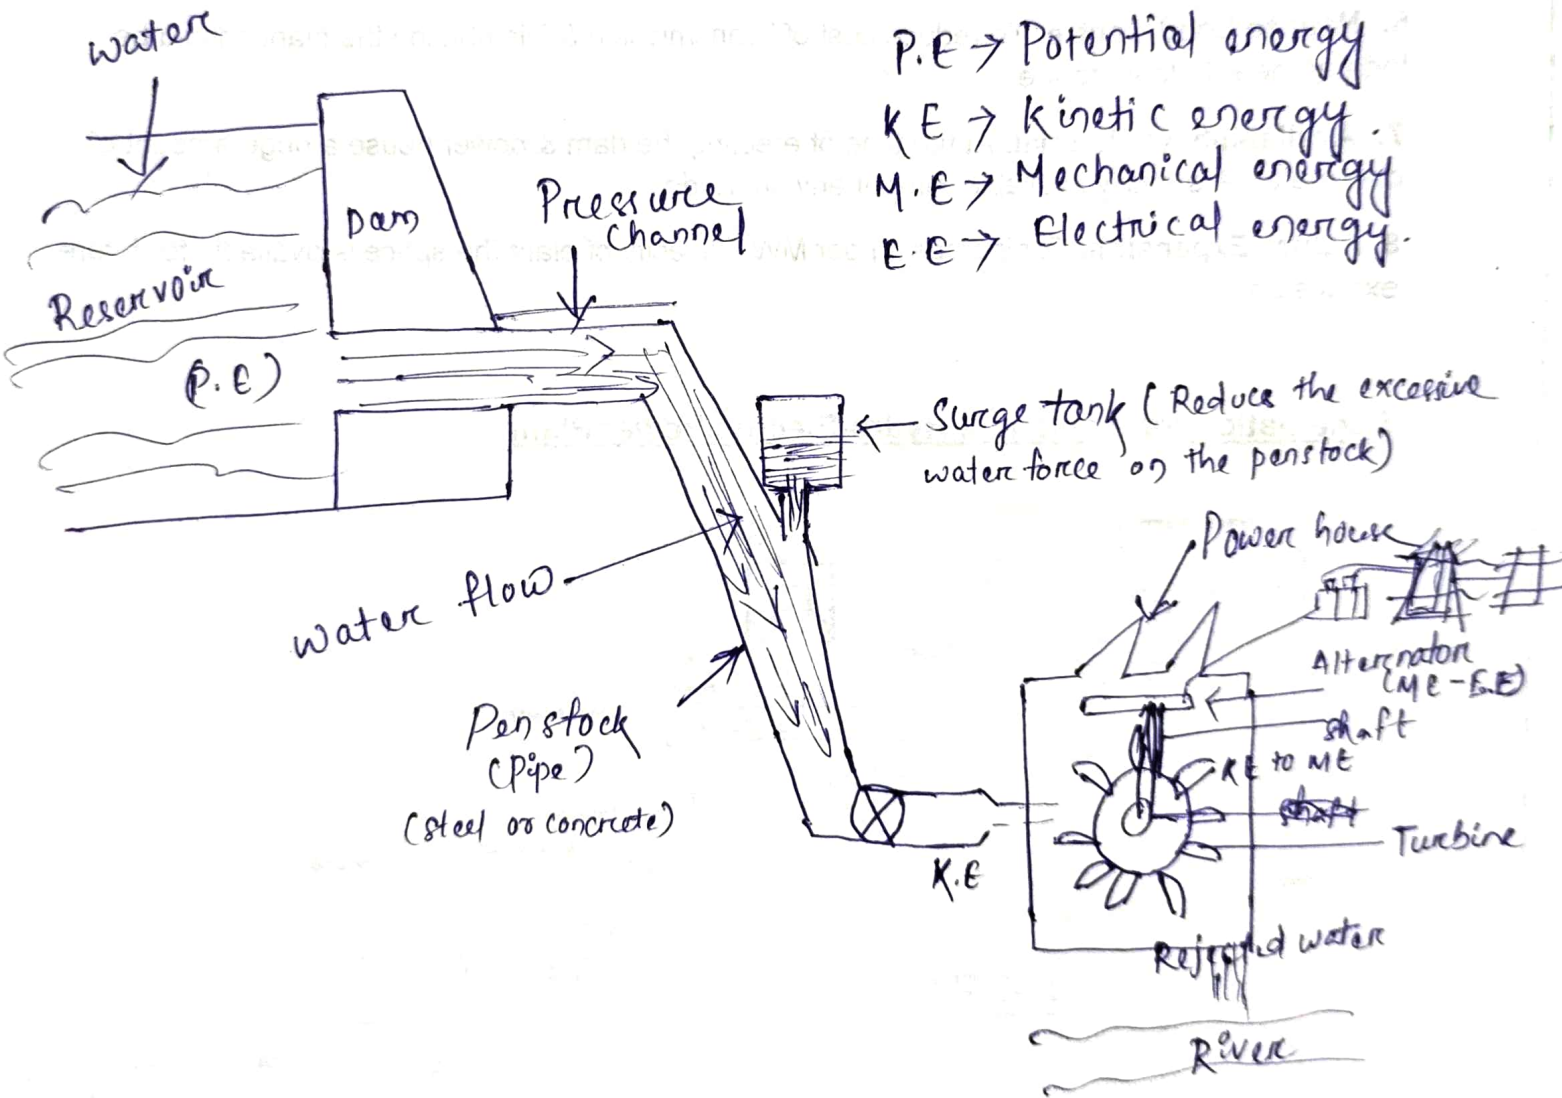 water
P.E → Potential energy
K E → Kinetic energy.
M.E → Mechanical energy
E.E → Electrical energy.
Dam
Pressure
channel
Reservoir
(P.E)
Surge tank (Reduce the excessive
water force on the penstock)
Power house
water flow
Alternator
(ME - E.E)
shaft
KE to ME
shaft
Turbine
Penstock
(Pipe)
(steel or concrete)
K.E
Rejected water
River